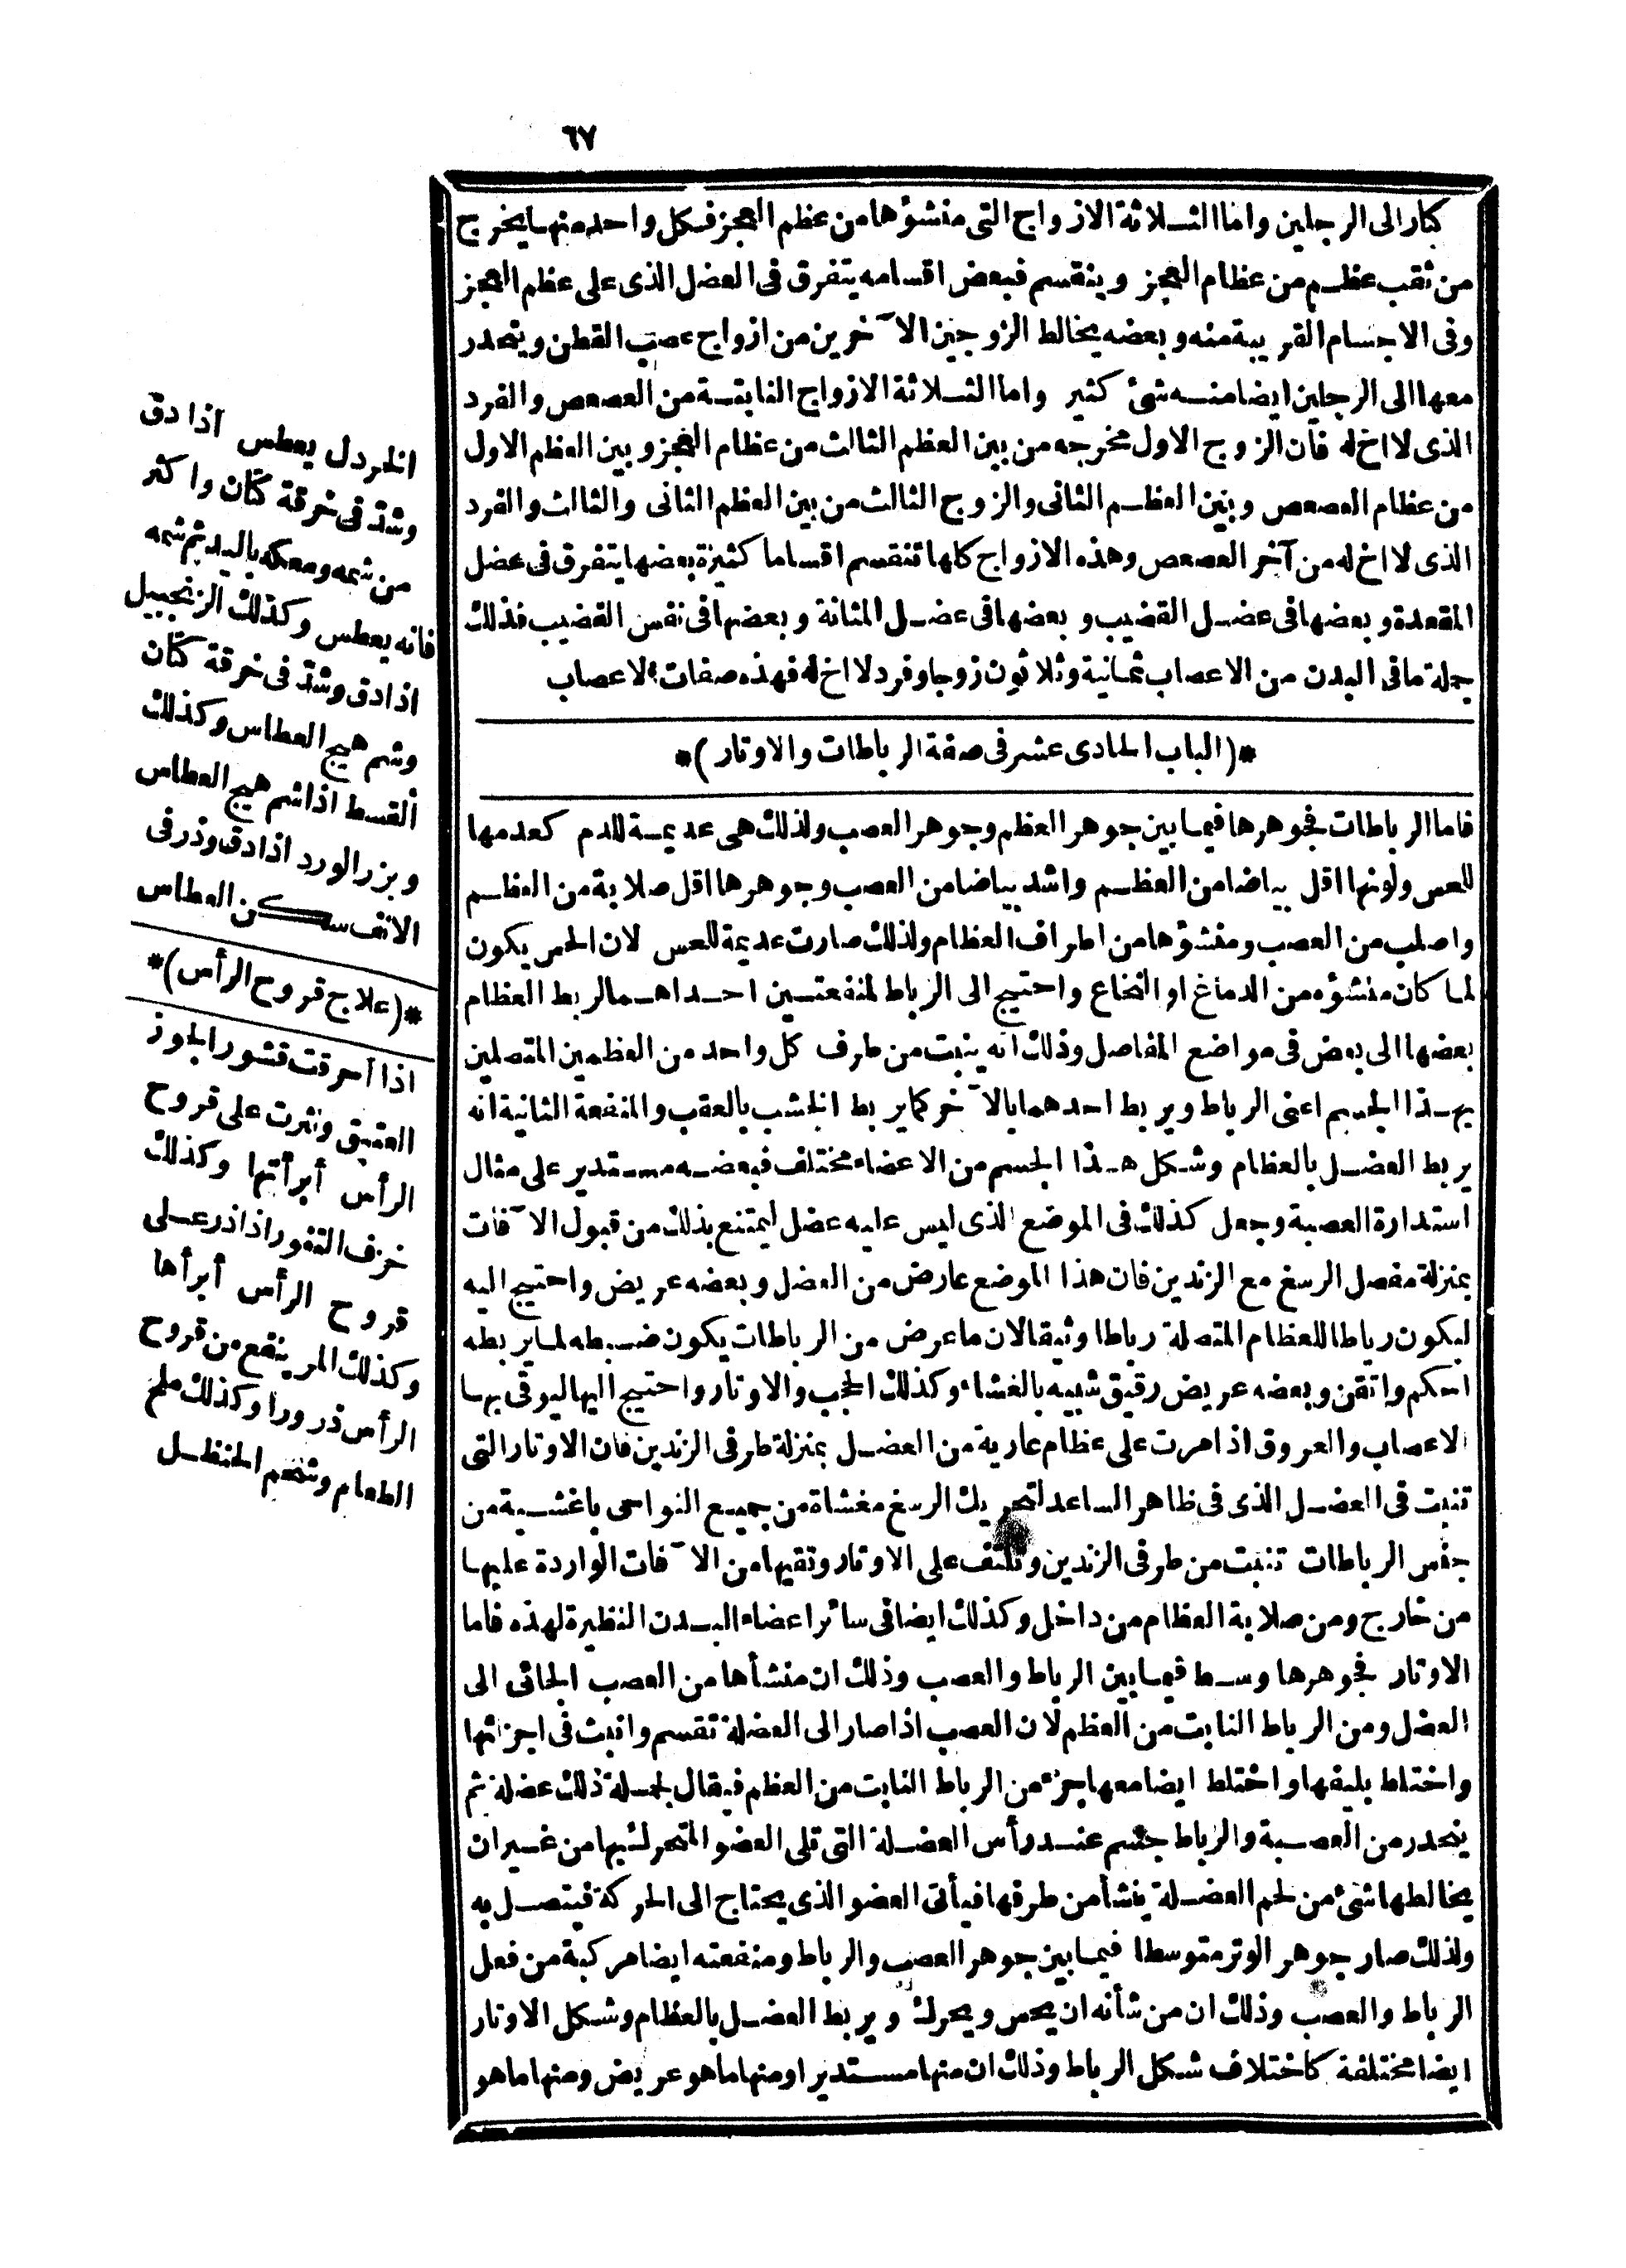 ٦٧
كبار الى الرجلين واما الثلاثة الازواج التى منشؤها من عظم العجز فكل واحد منها يخرج
من ثقب عظم من عظام العجز وينقسم فبعض اقسامه يتفرق فى العضل الذى على عظم العجز
وفى الاجسام القريبة منه وبعضه يخالط الزوجين الآخرين من ازواج عصب القطن وينحدر
معها الى الرجلين ايضا منه شئ كثير واما الثلاثة الازواج النابتة من العصعص والفرد
الذى لا اخ له فان الزوج الاول مخرجه من بين العظم الثالث من عظام العجز وبين العظم الاول
من عظام العصعص وبين العظم الثانى والزوج الثالث من بين العظم الثانى والثالث والفرد
الذى لا اخ له من آخر العصعص وهذه الازواج كلها تنقسم اقساما كثيرة بعضها يتفرق فى عضل
المقعدة وبعضها فى عضل القضيب وبعضها فى عضل المثانة وبعضها فى نفس القضيب فذلك
جملة ما فى البدن من الاعصاب ثمانية وثلاثون زوجا وفرد لا اخ له فهذه صفات الاعصاب
*(الباب الحادى عشر فى صفة الرباطات والاوتار)*
فاما الرباطات فجوهرها فيما بين جوهر العظم وجوهر العصب ولذلك هى عديمة للدم كعدمها
للحس ولونها اقل بياضا من العظم واشد بياضا من العصب وجوهرها اقل صلابة من العظم
واصلب من العصب ومنشؤها من اطراف العظام ولذلك صارت عديمة للحس لان الحس يكون
لما كان منشؤه من الدماغ او النخاع واحتيج الى الرباط لمنفعتين احداهما لربط العظام
بعضها الى بعض فى مواضع المفاصل وذلك انه ينبت من طرف كل واحد من العظمين المتصلين
بهذا الجسم اعنى الرباط ويربط احدهما بالآخر كما يربط الخشب بالعقب والمنفعة الثانية انه
يربط العضل بالعظام وشكل هذا الجسم من الاعضاء مختلف فبعضه مستدير على مثال
استدارة العصبة وجعل كذلك فى الموضع الذى ليس عليه عضل ليمتنع بذلك من قبول الآفات
بمنزلة مفصل الرسغ مع الزندين فان هذا الموضع عارض من العضل وبعضه عريض واحتيج اليه
ليكون رباطا للعظام المتصلة رباطا وثيقا لان ما عرض من الرباطات يكون ضبطه لما يربطه
احكم واتقن وبعضه عريض رقيق شبيه بالغشاء وكذلك الحجب والاوتار واحتيج اليها ليوقى بها
الاعصاب والعروق اذا مرت على عظام عارية من العضل بمنزلة طرفى الزندين فان الاوتار التى
تنبت فى العضل الذى فى ظاهر الساعد لتحريك الرسغ مغشاة من جميع النواحى باغشية من
جنس الرباطات تنبت من طرفى الزندين وتلتف على الاوتار وتقيها من الآفات الواردة عليها
من خارج ومن صلابة العظام من داخل وكذلك ايضا فى سائر اعضاء البدن النظيرة لهذه فاما
الاوتار فجوهرها وسط فيما بين الرباط والعصب وذلك ان منشأها من العصب الجائى الى
العضل ومن الرباط النابت من العظم لان العصب اذا صار الى العضلة تقسم وانبث فى اجزائها
واختلط بليفها واختلط ايضا معها جزء من الرباط النابت من العظم فيقال لجملة ذلك عضلة ثم
ينحدر من العصبة والرباط جسم عند رأس العضلة التى تلى العضو المتحرك بها من غير ان
يخالطها شئ من لحم العضلة ينشأ من طرفها فيأتى العضو الذى يحتاج الى الحركة فيتصل به
ولذلك صار جوهر الوتر متوسطا فيما بين جوهر العصب والرباط ومنفعته ايضا مركبة من فعل
الرباط والعصب وذلك ان من شأنه ان يحس ويحرك ويربط العضل بالعظام وشكل الاوتار
ايضا مختلفة كاختلاف شكل الرباط وذلك ان منها مستديرا ومنها ما هو عريض ومنها ما هو
الخردل يعطس اذا دق
وشد فى خرقة كتان واكثر
من شمه ومعكه باليد ثم شمه
فانه يعطس وكذلك الزنجبيل
اذا دق وشد فى خرقة كتان
وشم هيج العطاس وكذلك
القسط اذا شم هيج العطاس
وبزر الورد اذا دق وذر فى
الانف سكن العطاس
*(علاج قروح الرأس)*
اذا احرقت قشور الجوز
العتيق ونثرت على قروح
الرأس أبرأتها وكذلك
خزف التنور اذا ذر على
قروح الرأس أبرأها
وكذلك المر ينفع من قروح
الرأس ذرورا وكذلك ملح
الطعام وشحم الحنظل